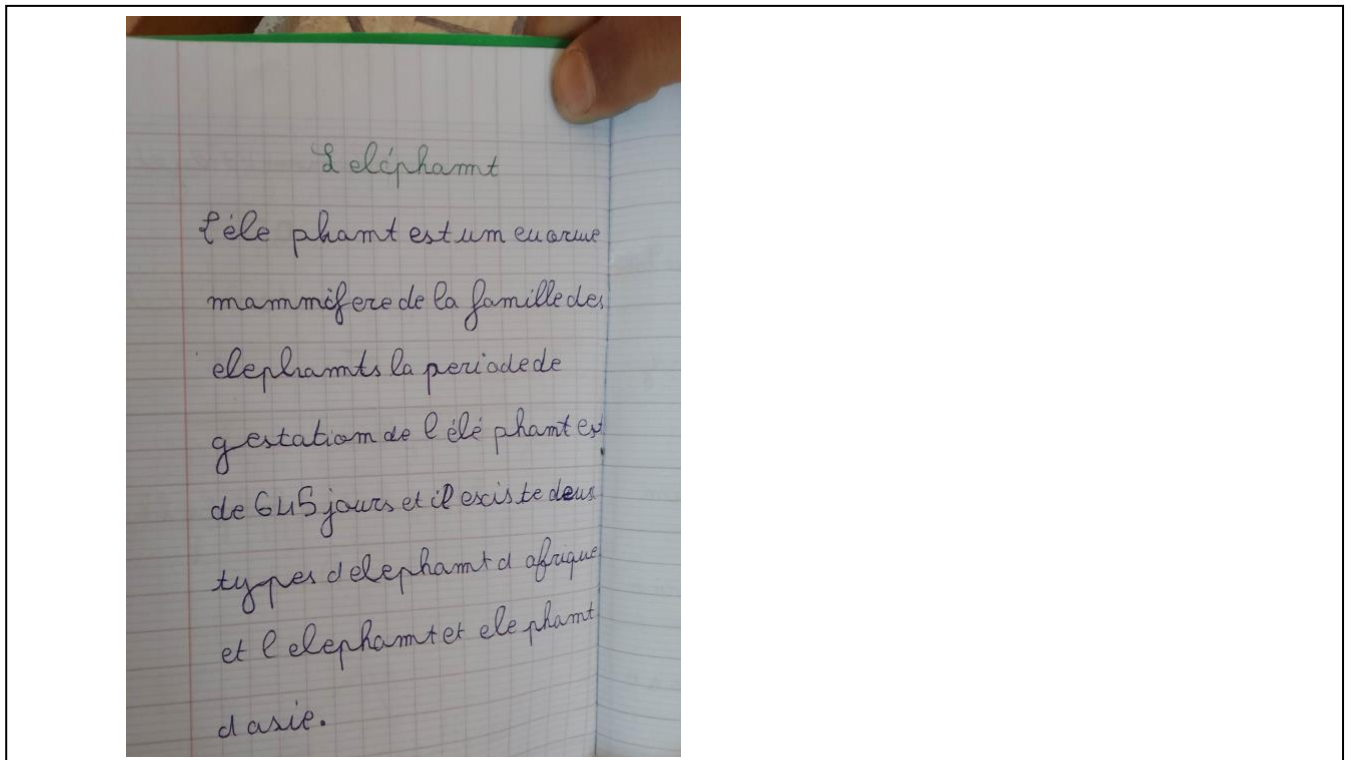 L eléphamt
l'éle phamt est um enorme
mammifere de la famille des
elephamts la periode de
gestatiom de l élé phamt est
de 645 jours et il escis te deux
types d elephamt d afrique
et l elephamt et ele phamt
d asie.